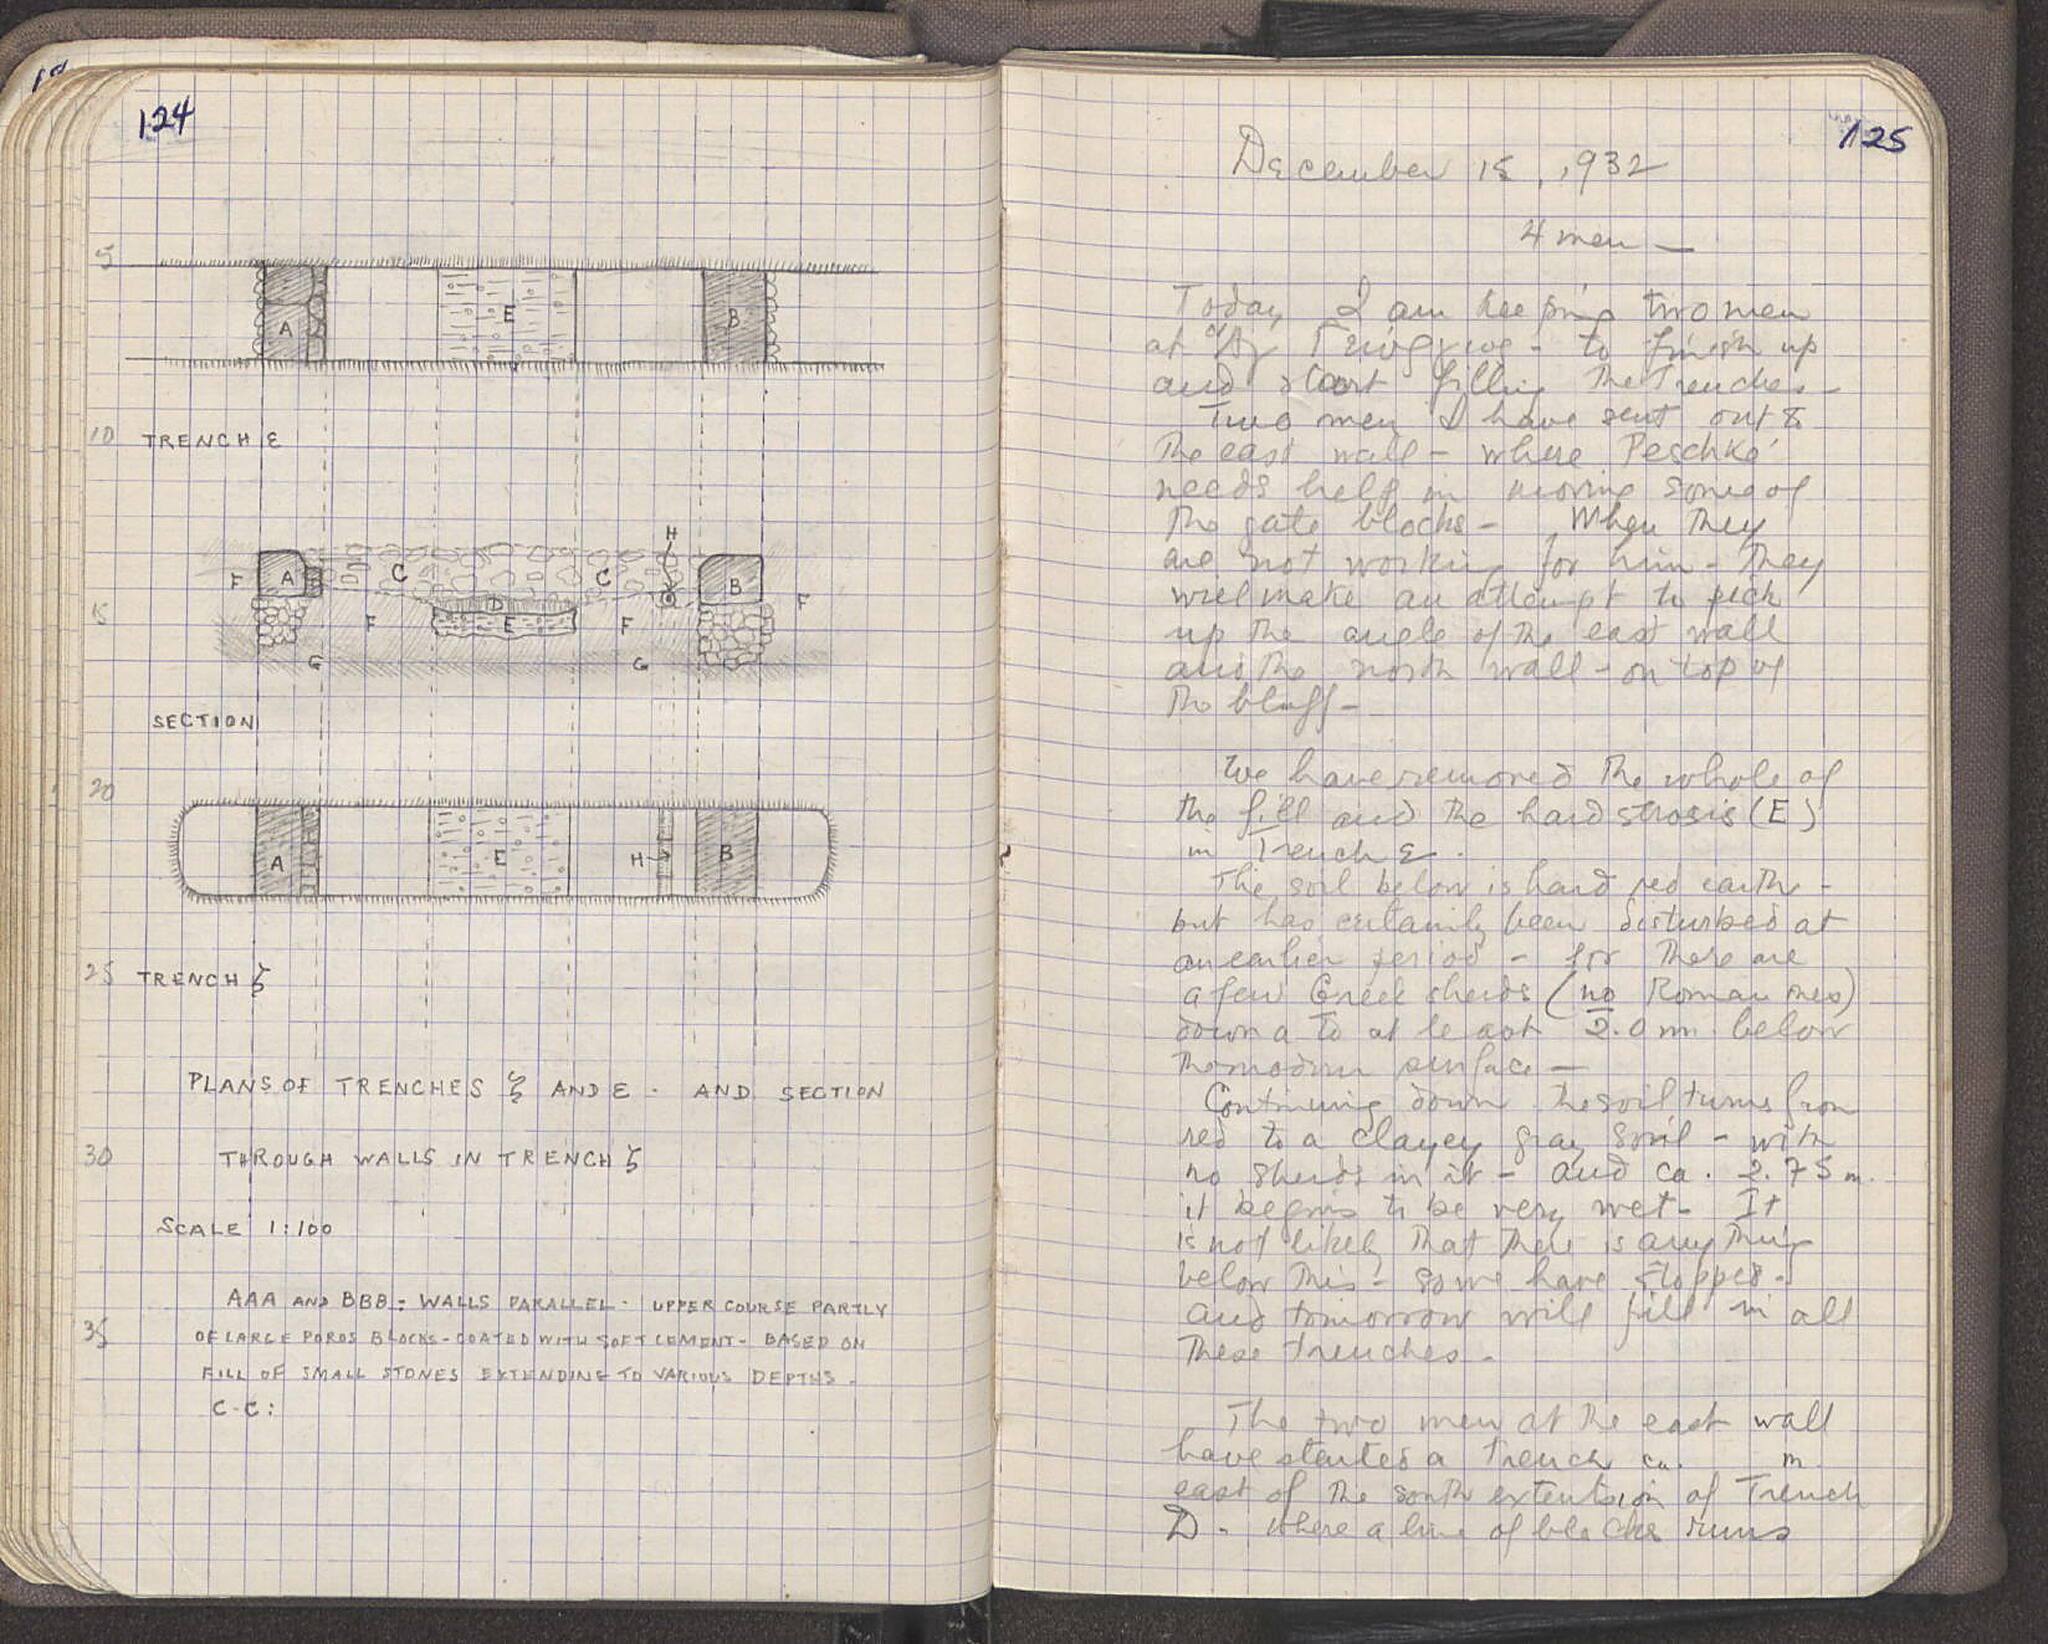 124
5
A
E
B
10 TRENCH ε
H
F A C C B F
15 D
F E F
G G
SECTION
20
A E H B
25 TRENCH ζ
PLANS OF TRENCHES ζ AND ε - AND SECTION
30 THROUGH WALLS IN TRENCH ζ
SCALE 1:100
AAA AND BBB: WALLS PARALLEL - UPPER COURSE PARTLY
35 OF LARGE POROS BLOCKS - COATED WITH SOFT CEMENT - BASED ON
FILL OF SMALL STONES EXTENDING TO VARIOUS DEPTHS.
C-C:
125
December 15, 1932
4 men —
Today I am keeping two men
at - to finish up
and start filling the trenches -
Two men I have sent out to
the east wall - where Peschke
needs help in moving some of
the gate blocks - When they
are not working for him - they
will make an attempt to pick
up the angle of the east wall
and the north wall - on top of
the bluff -
We have removed the whole of
the fill and the hard strosis (E)
in Trench ε.
The soil below is hard red earth -
but has certainly been disturbed at
an earlier period - for there are
a few Greek sherds (no Roman ones)
down to at least 2.0 m. below
the modern surface —
Continuing down the soil turns from
red to a clayey gray soil - with
no sherds in it - and ca. 2.75 m.
it begins to be very wet - It
is not likely that there is anything
below this - so we have stopped -
and tomorrow will fill in all
these trenches -
The two men at the east wall
have started a trench ca. m.
east of the south extension of Trench
D - where a line of blocks runs